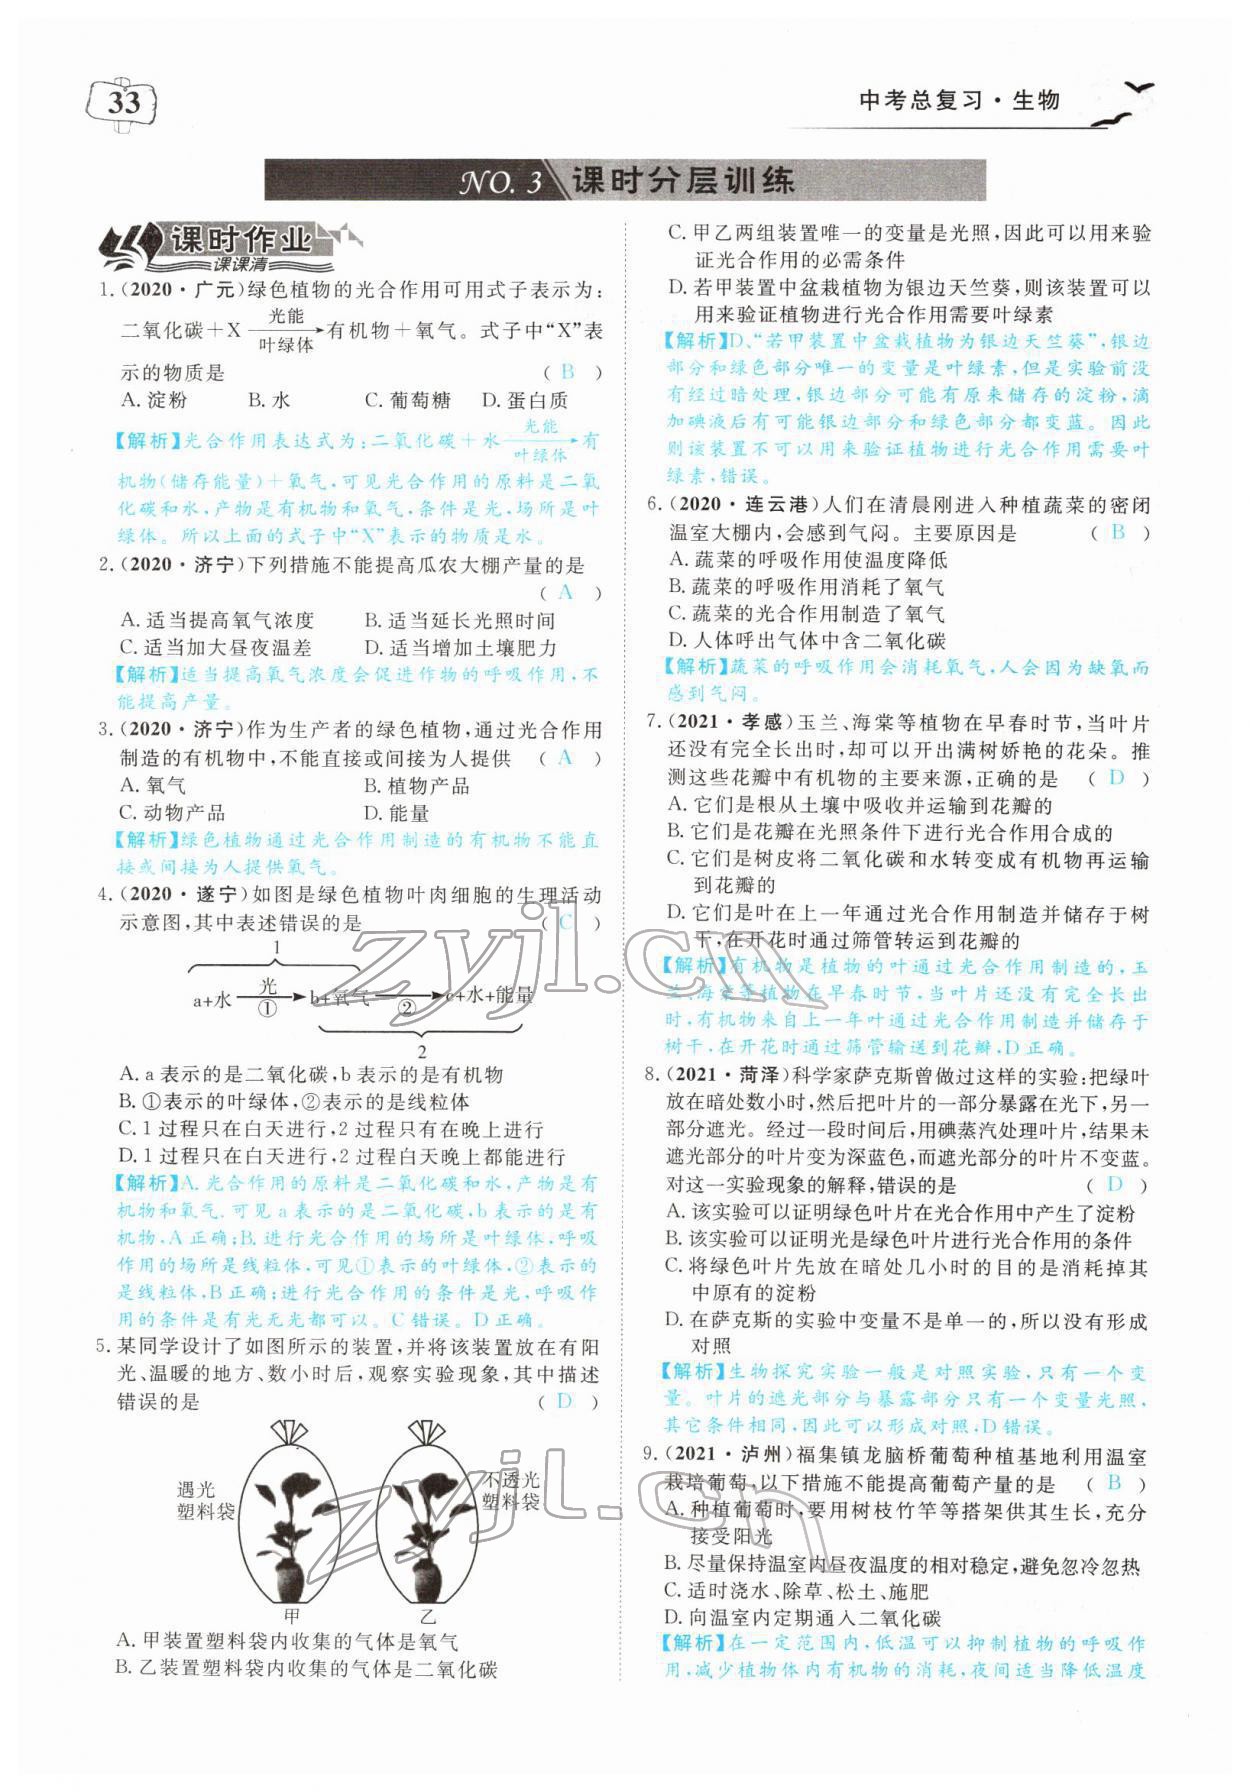 33
中考总复习·生物
NO. 3 课时分层训练
课时作业
课课清
1.(2020·广元)绿色植物的光合作用可用式子表示为:
二氧化碳+X 光能/叶绿体→有机物+氧气。式子中“X”表
示的物质是 ( B )
A. 淀粉 B. 水 C. 葡萄糖 D. 蛋白质
【解析】光合作用表达式为:二氧化碳+水 光能/叶绿体→有
机物(储存能量)+氧气,可见光合作用的原料是二氧
化碳和水,产物是有机物和氧气,条件是光,场所是叶
绿体。所以上面的式子中“X”表示的物质是水。
2.(2020·济宁)下列措施不能提高瓜农大棚产量的是
( A )
A. 适当提高氧气浓度 B. 适当延长光照时间
C. 适当加大昼夜温差 D. 适当增加土壤肥力
【解析】适当提高氧气浓度会促进作物的呼吸作用,不
能提高产量。
3.(2020·济宁)作为生产者的绿色植物,通过光合作用
制造的有机物中,不能直接或间接为人提供 ( A )
A. 氧气 B. 植物产品
C. 动物产品 D. 能量
【解析】绿色植物通过光合作用制造的有机物不能直
接或间接为人提供氧气。
4.(2020·遂宁)如图是绿色植物叶肉细胞的生理活动
示意图,其中表述错误的是 ( C )
1
a+水 光 ① b+氧气 ② c+水+能量
2
A. a 表示的是二氧化碳,b 表示的是有机物
B. ①表示的叶绿体,②表示的是线粒体
C. 1 过程只在白天进行,2 过程只有在晚上进行
D. 1 过程只在白天进行,2 过程白天晚上都能进行
【解析】A. 光合作用的原料是二氧化碳和水,产物是有
机物和氧气. 可见 a 表示的是二氧化碳,b 表示的是有
机物,A 正确;B. 进行光合作用的场所是叶绿体,呼吸
作用的场所是线粒体,可见①表示的叶绿体,②表示的
是线粒体,B 正确;进行光合作用的条件是光,呼吸作
用的条件是有光无光都可以。C 错误。D 正确。
5. 某同学设计了如图所示的装置,并将该装置放在有阳
光、温暖的地方、数小时后,观察实验现象,其中描述
错误的是 ( D )
透光
塑料袋
不透光
塑料袋
甲 乙
A. 甲装置塑料袋内收集的气体是氧气
B. 乙装置塑料袋内收集的气体是二氧化碳
C. 甲乙两组装置唯一的变量是光照,因此可以用来验
证光合作用的必需条件
D. 若甲装置中盆栽植物为银边天竺葵,则该装置可以
用来验证植物进行光合作用需要叶绿素
【解析】D、“若甲装置中盆栽植物为银边天竺葵”,银边
部分和绿色部分唯一的变量是叶绿素,但是实验前没
有经过暗处理,银边部分可能有原来储存的淀粉,滴
加碘液后有可能银边部分和绿色部分都变蓝。因此
则该装置不可以用来验证植物进行光合作用需要叶
绿素,错误。
6.(2020·连云港)人们在清晨刚进入种植蔬菜的密闭
温室大棚内,会感到气闷。主要原因是 ( B )
A. 蔬菜的呼吸作用使温度降低
B. 蔬菜的呼吸作用消耗了氧气
C. 蔬菜的光合作用制造了氧气
D. 人体呼出气体中含二氧化碳
【解析】蔬菜的呼吸作用会消耗氧气,人会因为缺氧而
感到气闷。
7.(2021·孝感)玉兰、海棠等植物在早春时节,当叶片
还没有完全长出时,却可以开出满树娇艳的花朵。推
测这些花瓣中有机物的主要来源,正确的是 ( D )
A. 它们是根从土壤中吸收并运输到花瓣的
B. 它们是花瓣在光照条件下进行光合作用合成的
C. 它们是树皮将二氧化碳和水转变成有机物再运输
到花瓣的
D. 它们是叶在上一年通过光合作用制造并储存于树
干,在开花时通过筛管转运到花瓣的
【解析】有机物是植物的叶通过光合作用制造的,玉
兰、海棠等植物在早春时节,当叶片还没有完全长出
时,有机物来自上一年叶通过光合作用制造并储存于
树干,在开花时通过筛管输送到花瓣,D 正确。
8.(2021·菏泽)科学家萨克斯曾做过这样的实验:把绿叶
放在暗处数小时,然后把叶片的一部分暴露在光下,另一
部分遮光。经过一段时间后,用碘蒸汽处理叶片,结果未
遮光部分的叶片变为深蓝色,而遮光部分的叶片不变蓝。
对这一实验现象的解释,错误的是 ( D )
A. 该实验可以证明绿色叶片在光合作用中产生了淀粉
B. 该实验可以证明光是绿色叶片进行光合作用的条件
C. 将绿色叶片先放在暗处几小时的目的是消耗掉其
中原有的淀粉
D. 在萨克斯的实验中变量不是单一的,所以没有形成
对照
【解析】生物探究实验一般是对照实验,只有一个变
量。叶片的遮光部分与暴露部分只有一个变量光照,
其它条件相同,因此可以形成对照,D 错误。
9.(2021·泸州)福集镇龙脑桥葡萄种植基地利用温室
栽培葡萄,以下措施不能提高葡萄产量的是 ( B )
A. 种植葡萄时,要用树枝竹竿等搭架供其生长,充分
接受阳光
B. 尽量保持温室内昼夜温度的相对稳定,避免忽冷忽热
C. 适时浇水、除草、松土、施肥
D. 向温室内定期通入二氧化碳
【解析】在一定范围内,低温可以抑制植物的呼吸作
用,减少植物体内有机物的消耗,夜间适当降低温度
zyjl.cn
zyjl.cn